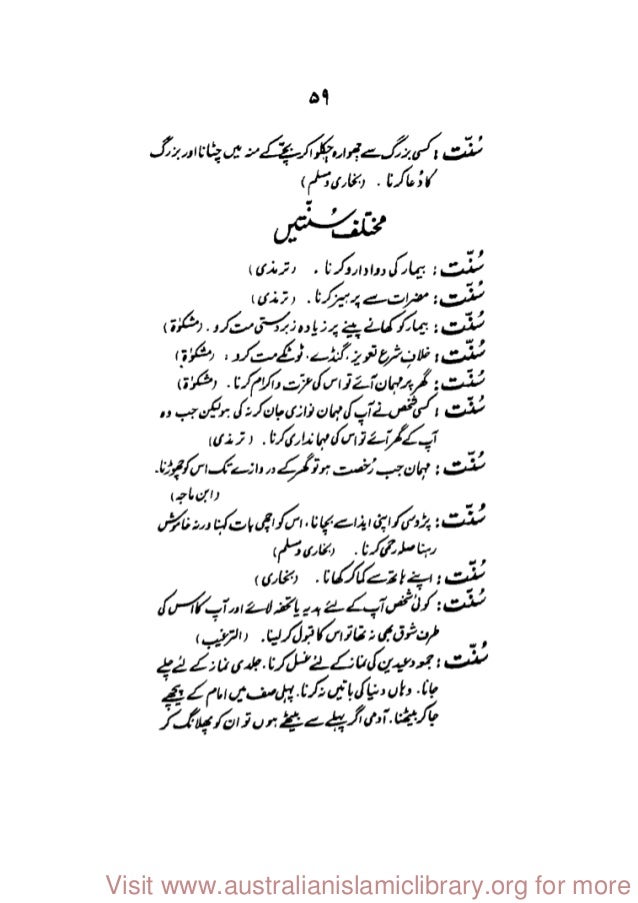 ۵۹
سُنّت : کسی بزرگ سے چھوارہ چکلوا کر بچّے کے منہ میں چٹانا اور بزرگ
کا دُعا کرنا ۔ (بخاری و مسلم)
مختلف سُنّتیں
سُنّت : بیمار کی دوا دارو کرنا ۔ (ترمذی)
سُنّت : مضرات سے پرہیز کرنا ۔ (ترمذی)
سُنّت : بیمار کو کھانے پینے پر زیادہ زبردستی مت کرو ۔ (مشکوٰۃ)
سُنّت : خلافِ شرع تعویز ، گنڈے ، ٹوٹکے مت کرو : (مشکوٰۃ)
سُنّت : گھر پر مہمان آئے تو اس کی عزّت و اکرام کرنا ۔ (مشکوٰۃ)
سُنّت : کسی شخص نے آپ کی مہمان نوازی جان کر نہ کی ہو لیکن جب وہ
آپ کے گھر آئے تو اس کی مہمانداری کرنا ۔ (ترمذی)
سُنّت : مہمان جب رُخصت ہو تو گھر کے دروازے تک اس کو چھوڑنا ۔
(ابن ماجہ)
سُنّت : پڑوسی کو اپنی ایذا سے بچانا ، اس کو اچھی بات کہنا ورنہ خاموش
رہنا صلہ رحمی کرنا ۔ (بخاری و مسلم)
سُنّت : اپنے ہاتھ سے کما کر کھانا ۔ (بخاری)
سُنّت : کوئی شخص آپ کے لئے ہدیہ یا تحفہ لائے اور آپ کا اس کی
طرف شوق بھی نہ تھا تو اس کا قبول کر لینا ۔ (الترغیب)
سُنّت : جمعہ و عیدین کی نماز کے لئے غسل کرنا ، جلدی نماز کے لئے چلے
جانا ۔ وہاں دنیا کی باتیں نہ کرنا ، پہلی صف میں امام کے پیچھے
جا کر بیٹھنا ، آدمی اگر پہلے سے بیٹھے ہوں تو ان کو پھلانگ کر
Visit www.australianislamiclibrary.org for more